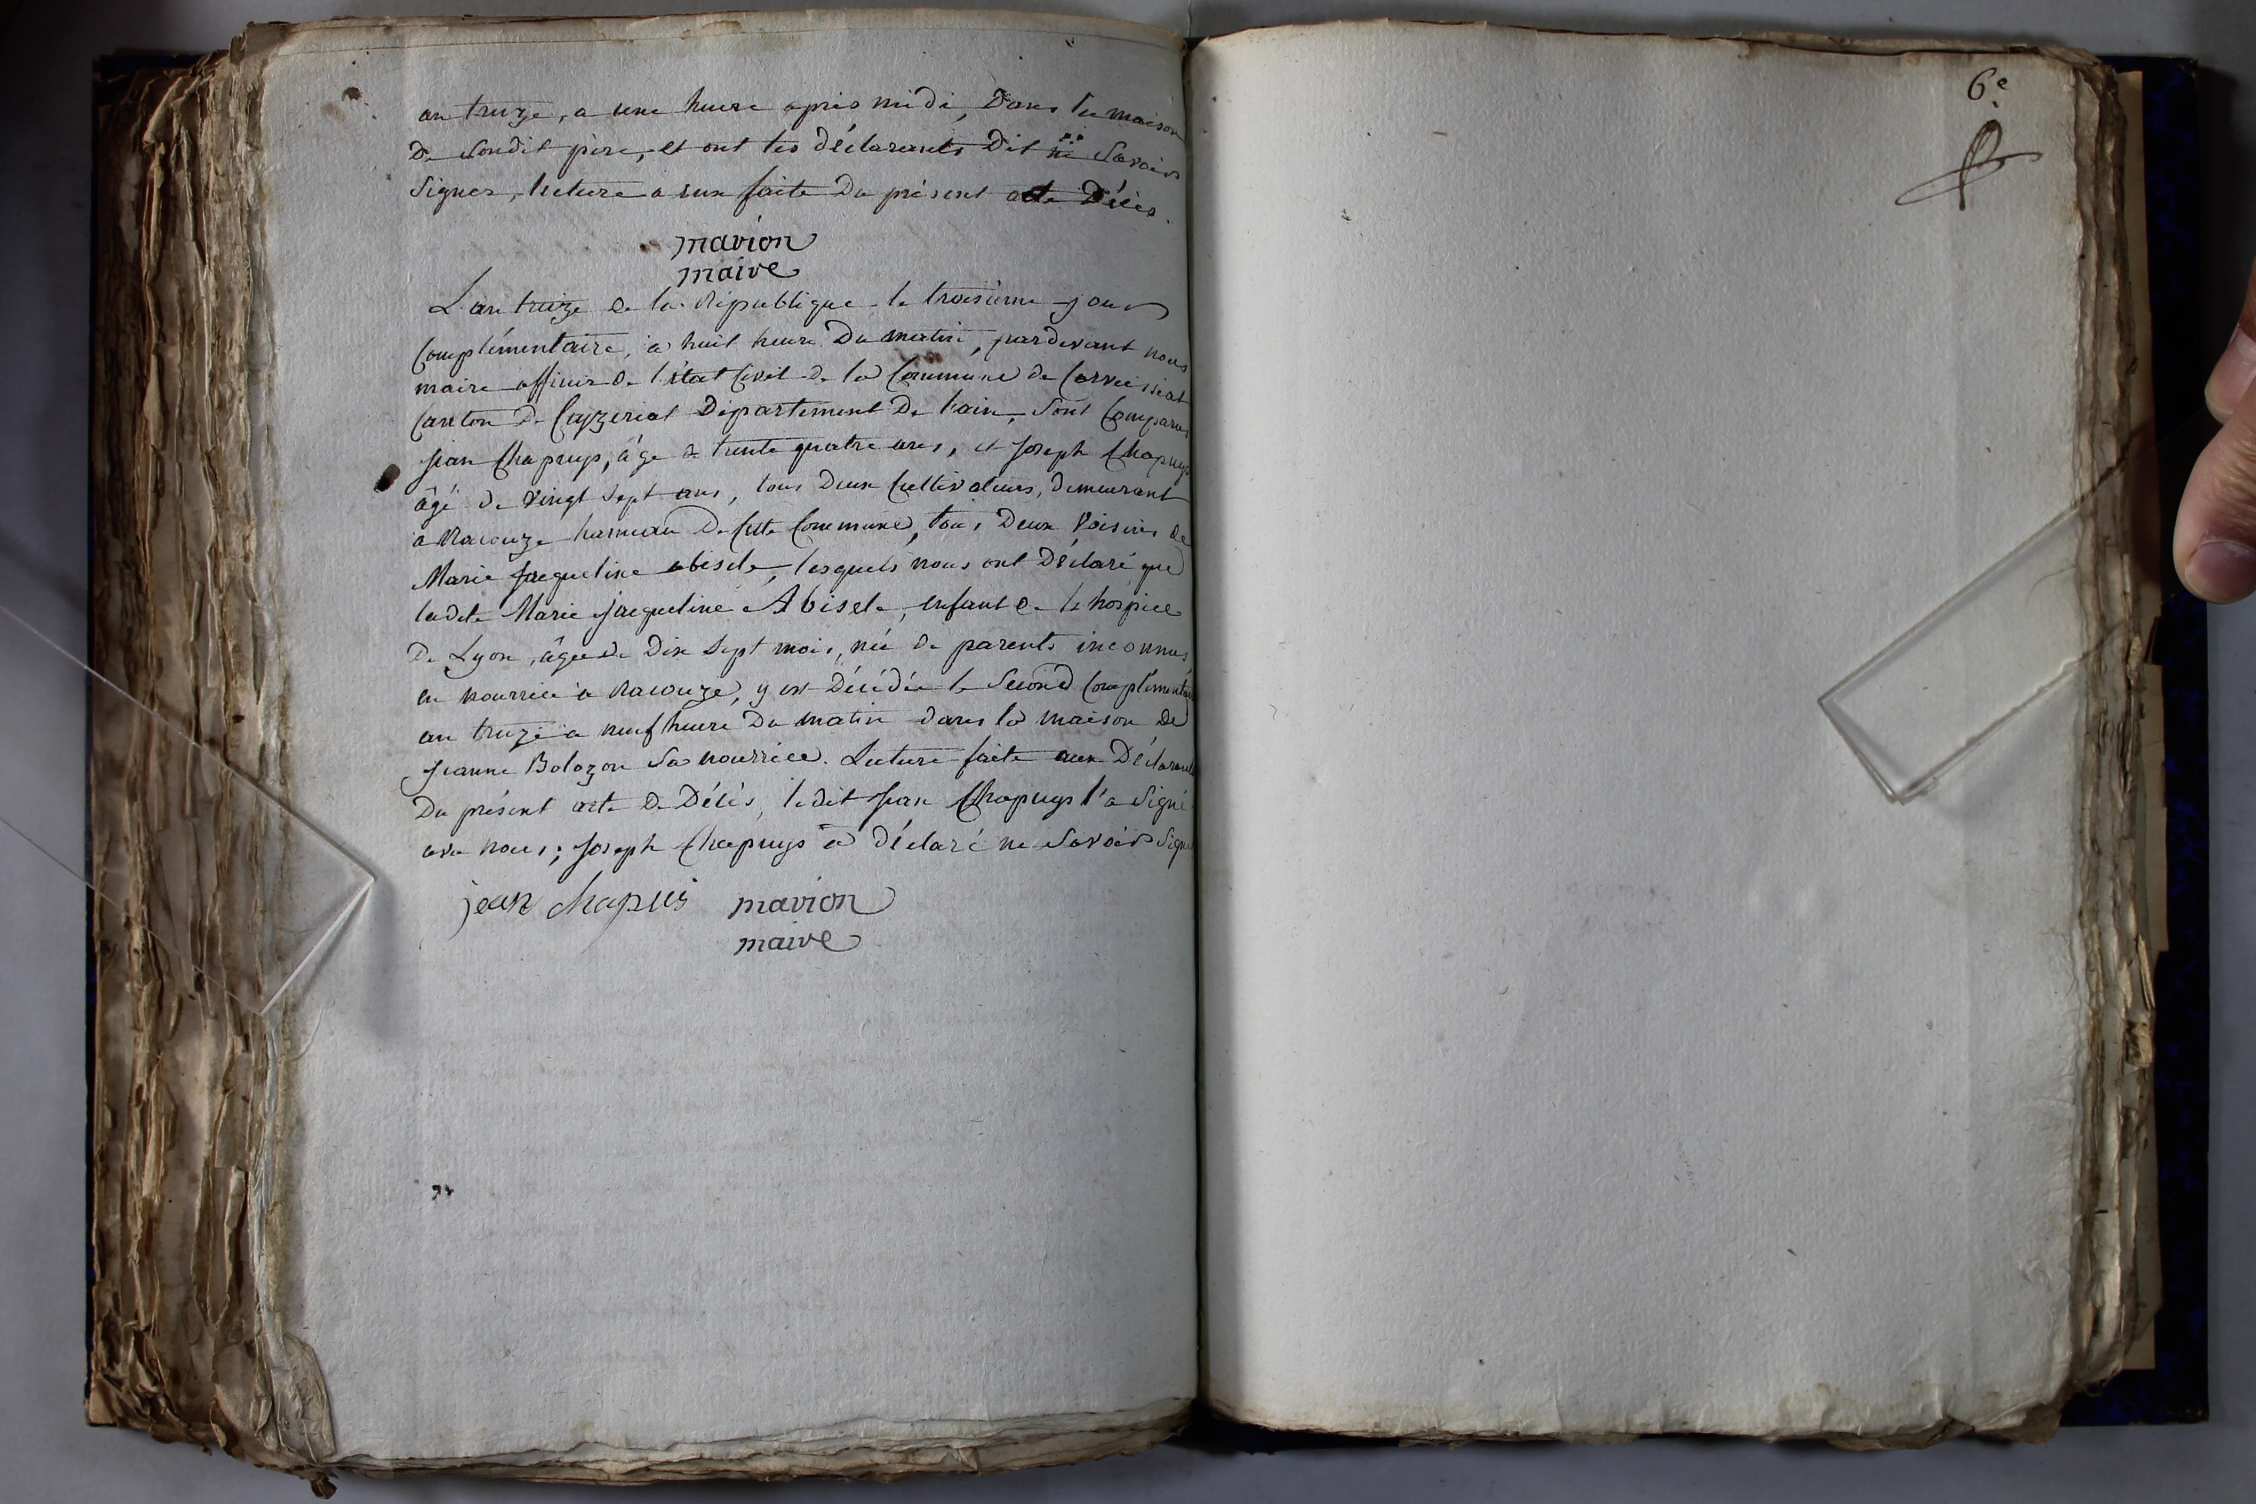 an treize, a une heure après midi, Dans la maison
De Sondit père, et ont les déclarants Dit ne Savoir
Signer, lecture a eux faite Du présent acte Décès.
marion
maire
L'an treize de la République le troisième jour
Complémentaire, à huit heure Du matin, pardevant nous
maire officier de l'état Civil de la Commune de Corveissiat
Canton De Ceyzeriat Département De l'ain, Sont Comparus
jean Chapuys, âgé de trente quatre ans, et Joseph Chapuys
âgé de vingt sept ans, tous Deux Cultivateurs, demeurant
a Racouze hameau De Cette Commune, tous Deux Voisins de
Marie Jacqueline abisele, lesquels nous ont Déclaré que
ladite Marie jacqueline Abisele, enfant de le hospice
De Lyon, âgée de Dix Sept mois, née de parents inconnus
en nourrice à Racouze, y est Décédée le Second Complémentaire
an treize a neuf heure Du matin dans la maison de
jeanne Bolozon Sa nourrice. Lecture faite aux Déclarants
Du présent acte De Décès, ledit jean Chapuys l'a Signé
avec nous; Joseph Chapuys a déclaré ne Savoir Signer
jean chapuis marion
maire
6.e